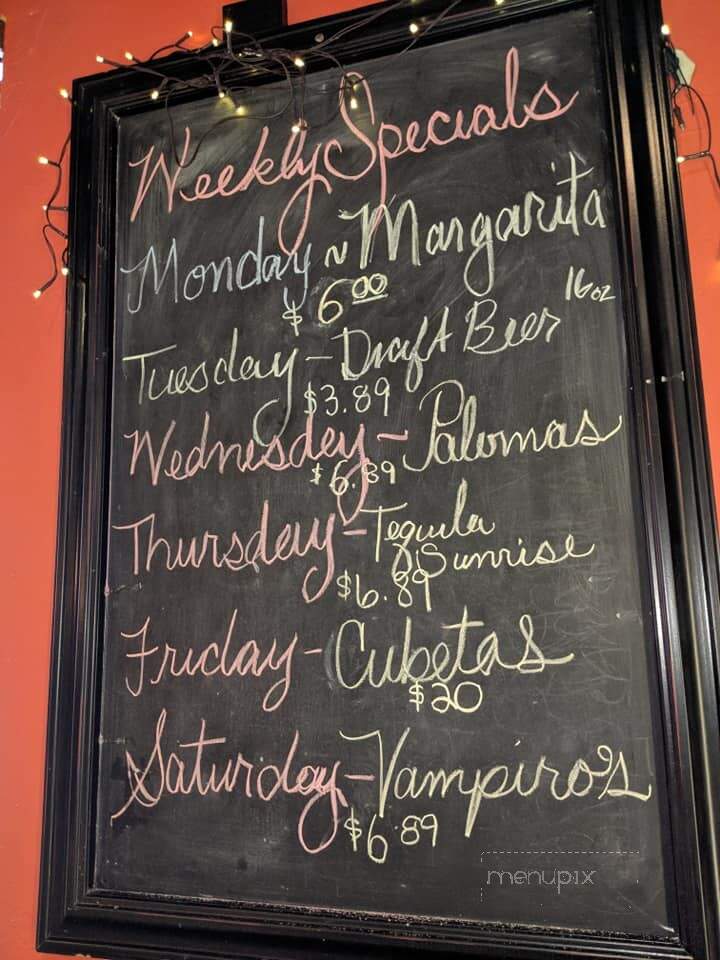 Weekly Specials
Monday ~ Margarita
$6.00
Tuesday - Draft Beer 16oz
$3.89
Wednesday - Palomas
$6.89
Thursday - Tequila
Sunrise
$6.89
Friday - Cubetas
$20
Saturday - Vampiro's
$6.89
menupix